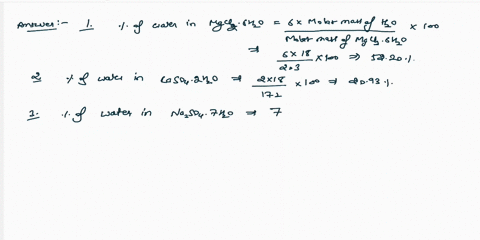 Answer:- 1. % of water in MgCl2.6H2O = 6 x Molar mass of H2O / Molar mass of MgCl2.6H2O x 100
⇒ 6 x 18 / 203 x 100 ⇒ 53.20 %.
2. % of water in CaSO4.2H2O ⇒ 2x18 / 172 x 100 ⇒ 20.93 %.
3. % of water in Na2SO4.7H2O ⇒ 7